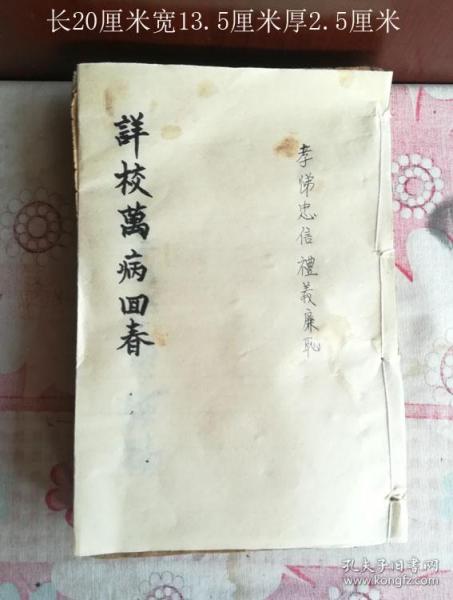 长20厘米宽13.5厘米厚2.5厘米
詳校萬病回春
孝悌忠信禮義廉恥
孔夫子旧书网
www.kongfz.com